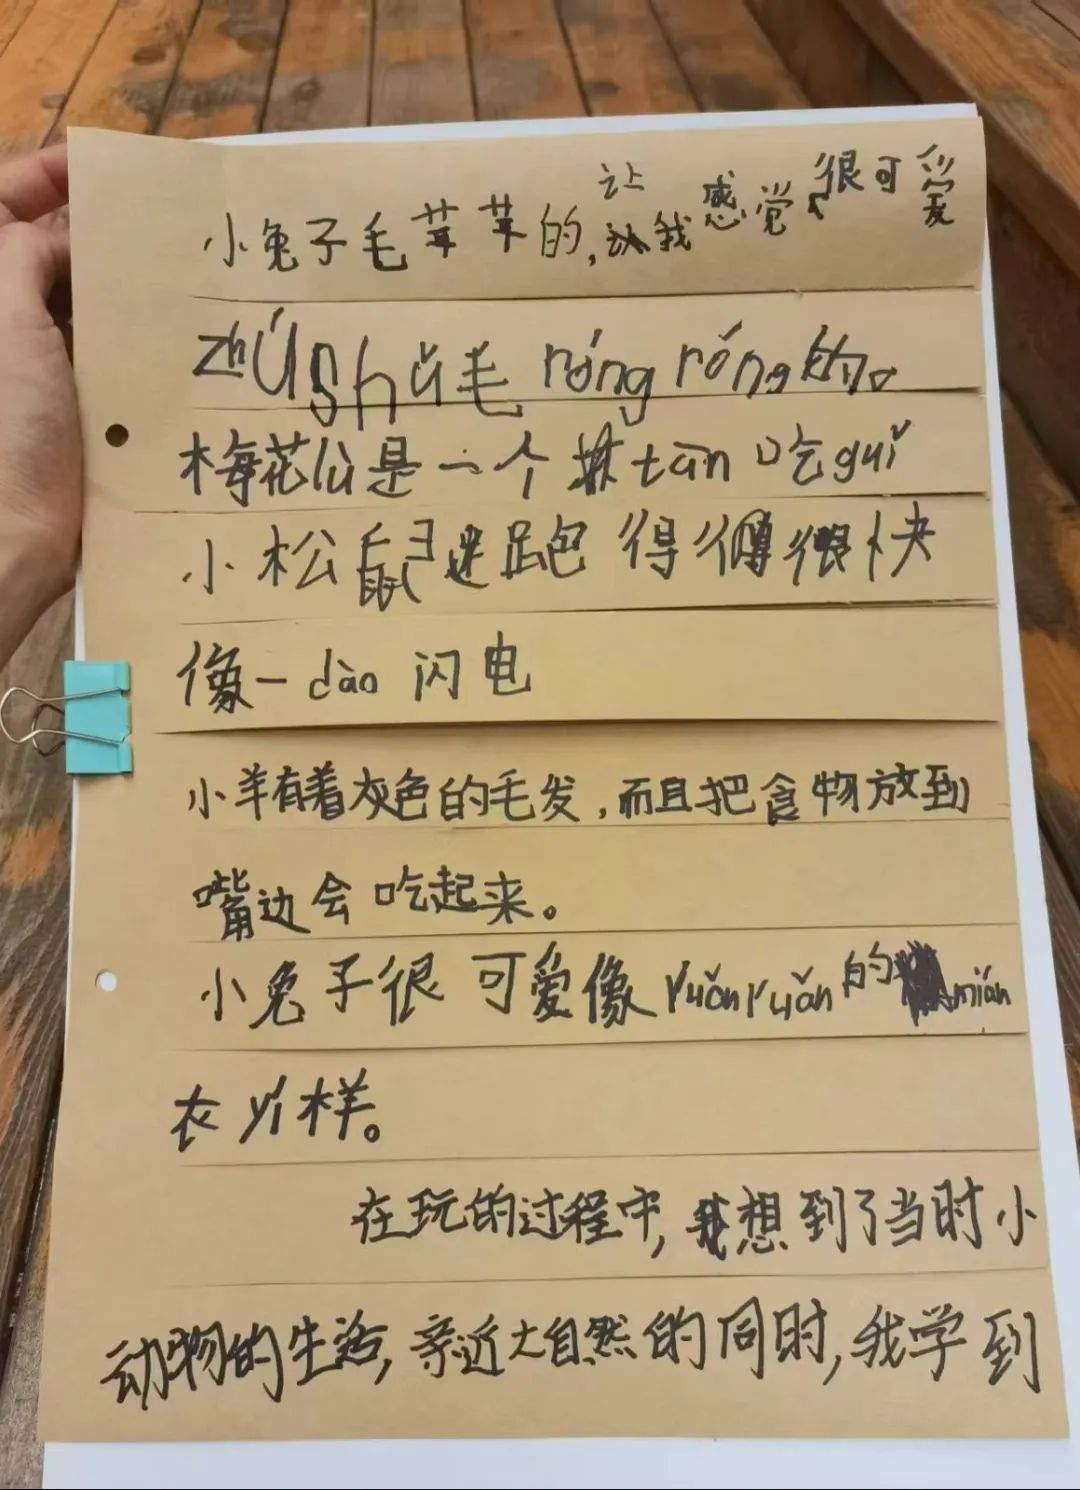 小兔子毛茸茸的,让我感觉很可爱
zhúshǔ毛róngróng的。
梅花lù是一个tān吃guǐ
小松鼠跑得很快
像一dào闪电
小羊有着灰色的毛发,而且把食物放到
嘴边会吃起来。
小兔子很可爱像ruǎnruǎn的mián
衣yí样。
在玩的过程中,我想到了当时小
动物的生活,亲近大自然的同时,我学到